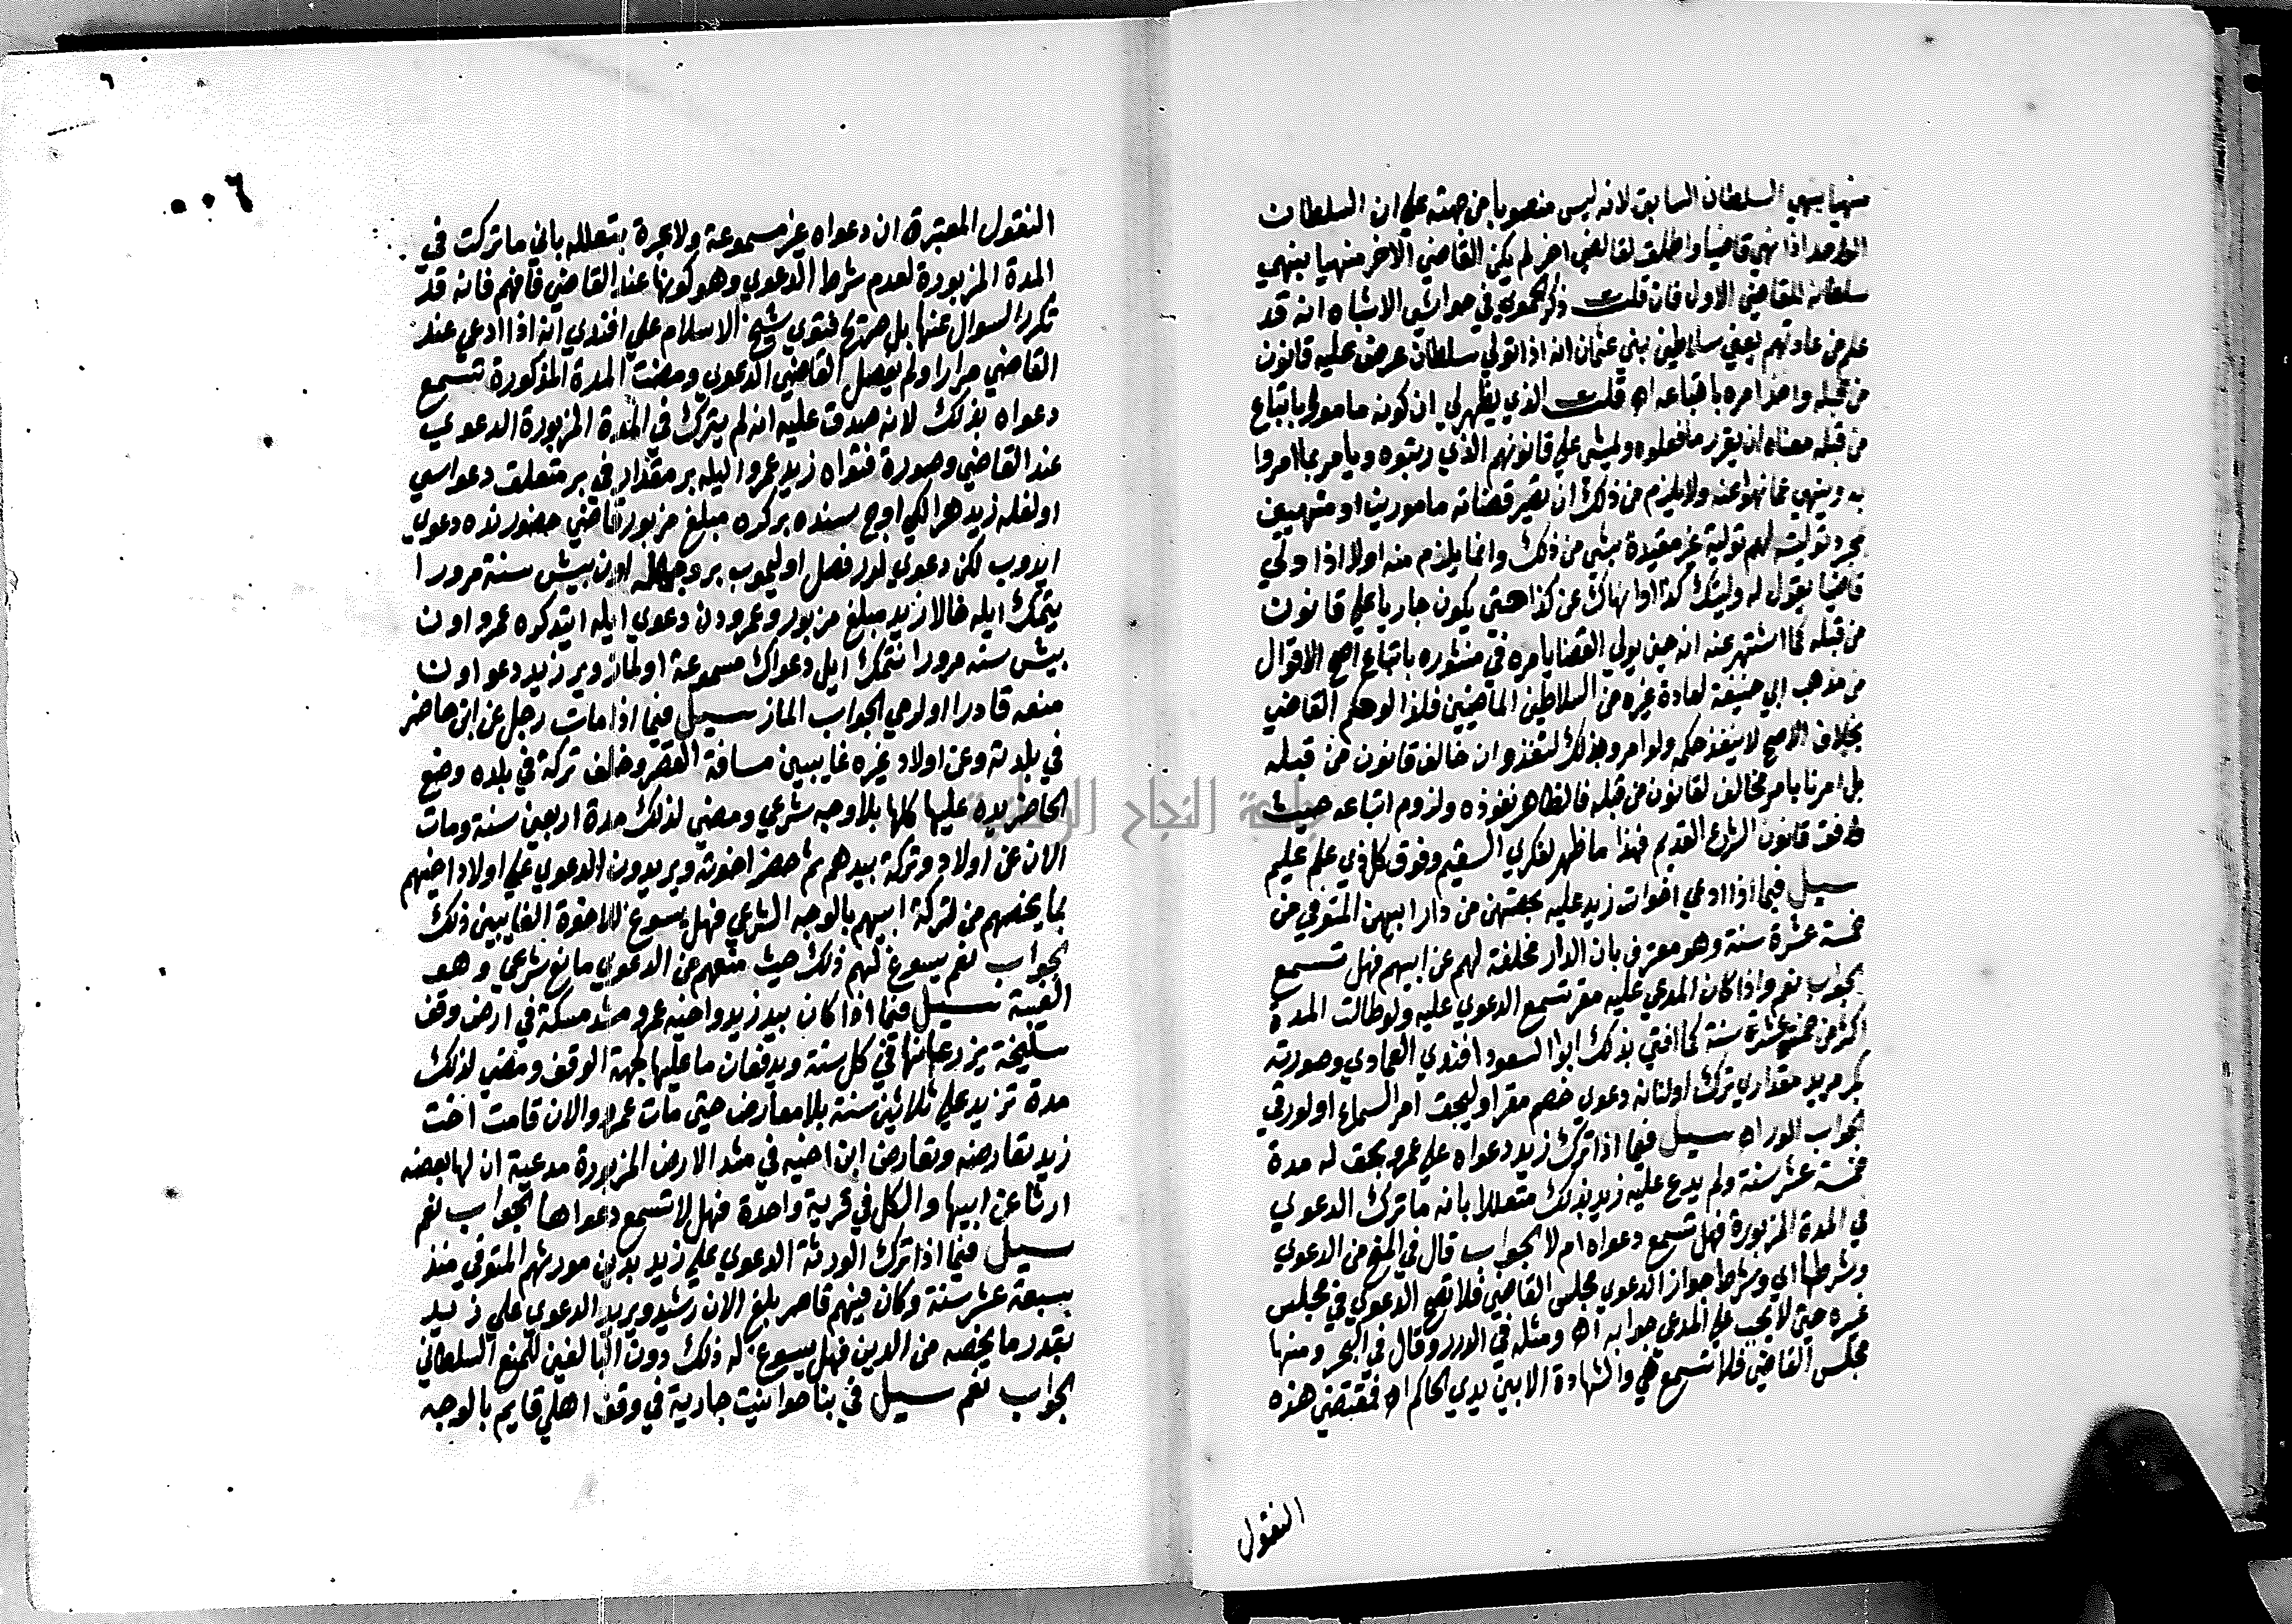 منهيا بنهي السلطان السابق لانه ليس منصوبا من جهته علي ان السلطان
الواحد اذا نهي قاضيا واطلق لقاضي اخر لم يكن القاضي الاخر منهيا بنهي
سلطانه للقاضي الاول فان قلت ذكر الحموي في حواشي الاشباه انه قد
علم من عادتهم يعني سلاطين بني عثمان انه اذا تولي سلطان عرض عليه قانون
من قبله واخذ امره باتباعه اه قلت الذي يظهر لي ان كونه مامور باتباع
من قبله معناه ان يقرر ما فعلوه ويمشي علي قانونهم الذي رتبوه ويامر بما امروا
به وينهي عما نهوا عنه ولا يلزم من ذلك ان تصير قضاته مامورين او منهيين
بمجرد توليته لهم تولية غير مقيدة بشي من ذلك وانما يلزم منه اولا اذا ولي
قاضيا يقول له وليتك كذا وانهاك عن كذا حتي يكون جاريا علي قانون
من قبله كما اشتهر عنه انه حين يولي القضا يامره في منشوره باتباع اصح الاقوال
من مذهب ابي حنيفة لعادة غيره من السلاطين الماضيين فلذا لو حكم القاضي
بخلاف الاصح لا ينفذ حكمه ولو امر وبذلك لتنفذ وان خالف قانون من قبله
بل امرنا بامر مخالف لقانون من قبله فالظاهر نفوذه ولزوم اتباعه حيث
وافق قانون الشرع القديم فهذا ما ظهر لفكري السقيم وفوق كل ذي علم عليم
سيل فيما اذا ادعي اخوات زيد عليه بحصتهن من دار ابيهن المتوفي من
خمسة عشرة سنة وهو معترف بان الدار مخلفة لهم عن ابيهم فهل تسمع
الجواب نعم واذا كان المدعي عليه مقر تسمع الدعوي عليه ولو طالت المدة
اكثر من خمسة عشرة سنة كما افتي بذلك ابوا السعود افندي العمادي وصورته
بكر مريد مقداري ترك اولنان دعوي خصم مقر اوليجق امر السماع اولورقي
الجواب الور اه سيل فيما اذا ترك زيد دعواه علي عمرو بحق له مدة
خمسة عشر سنة ولم يدع عليه زيد بذلك متعللا بانه ما ترك الدعوي
في المدة المزبورة فهل تسمع دعواه ام لا الجواب قال في المنح من الدعوي
وشرطها اي وشرط جواز الدعوي مجلس القاضي فلا تصح الدعوي في مجلس
غيره حتي لا يجب علي المدعي جوابه اه ومثله في الدرر وقال في البحر ومنها
مجلس القاضي فلا تسمع هي والشهادة الا بين يدي الحاكم اه فمقتضي هذه
النقول
٦
٠٠٦
النقول المعتبرة ان دعواه غير مسموعة ولا عبرة بتعلله باني ما تركت في
المدة المزبورة لعدم شرط الدعوي وهو كونها عند القاضي فافهم فانه قد
تكرر السوال عنها بل صرح فتوي شيخ الاسلام علي افندي انه اذا ادعي عند
القاضي مرارا ولم يفصل القاضي الدعوي ومضت المدة المذكورة تسمع
دعواه بذلك لانه صدق عليه انه لم يترك في المدة المزبورة الدعوي
عند القاضي وصورة فتواه زيد عمرو ايله بر مقدار في بر متعلق دعواسي
اولغله زيد هر ايكي اوچ سنده بر كره مبلغ مزبور قاضي حضورنده دعوي
ايدوب لكن دعوي لور فصل اوليموب بر وجهله اون بيش سنة مرورا
يتمك ايله حالا زيد مبلغ مزبور وعمرودن دعوي ايله ايتدكره عمرو اون
بيش سنه مرورا نتمك ايل دعواك مسموعة اولماز ويرزيد دعواون
منعه قادرا اولورمي الجواب الماز سيل فيما اذا مات رجل عن ابن حاضر
في بلدته وعن اولاد غيره غايبين مسافة القصر وخلف تركة في بلده وضع
الحاضر يده عليها كلها بلا وجه شرعي ومضي لذلك مدة اربعين سنة ومات
الان عن اولاد وتركة بيدهم ثم حضر اخوته ويريدون الدعوي علي اولاد اخيهم
بما يخصهم من تركة ابيهم بالوجه الشرعي فهل يسوغ للاخوة الغايبين ذلك
الجواب نعم يسوغ لهم ذلك حيث منعهم من الدعوي مانع شرعي وهو
الغيبة سيل فيما اذا كان بيد زيد واخيه عمرو مشد مسكة في ارض وقف
سليخة يزرعانها في كل سنة ويدفعان ما عليها لجهة الوقف ومضي لذلك
مدة تزيد علي ثلاثين سنة بلا معارض حتي مات عمرو والان قامت اخت
زيد تعارضه وتعارض ابن اخيه في مشد الارض المزبورة مدعية ان لها بعضه
ارثا عن ابيها والكل في قرية واحدة فهل لا تسمع دعواها الجواب نعم
سيل فيما اذا ترك الورثة الدعوي علي زيد بدين مورثهم المتوفي منذ
سبعة عشر سنة وكان فيهم قاصر بلغ الان رشيد ويريد الدعوي علي زيد
بقدر ما يخصه من الدين فهل يسوغ له ذلك دون البالغين للمنع السلطاني
الجواب نعم سيل في بنا حوانيت جارية في وقف اهلي قايم بالوجه
جامعة النجاح الوطنية